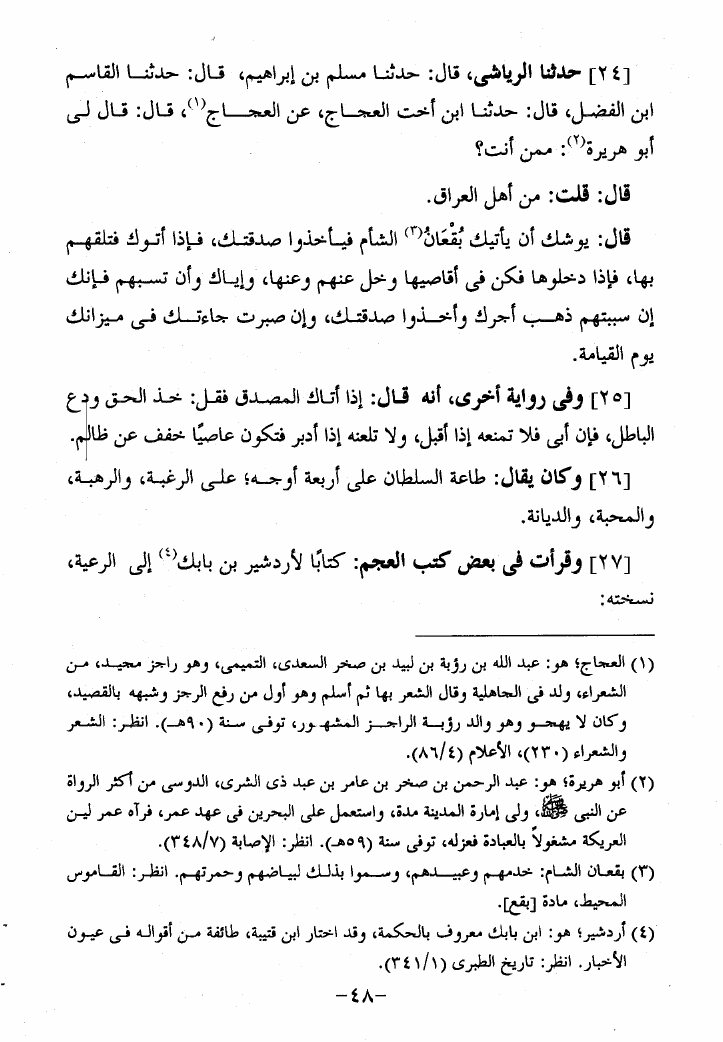 [٢٤] حدثنا الرياشى، قال: حدثنا مسلم بن إبراهيم، قال: حدثنا القاسم
ابن الفضل، قال: حدثنا ابن أخت العجاج، عن العجاج(١)، قال: قال لى
أبو هريرة(٢): ممن أنت؟
قال: قلت: من أهل العراق.
قال: يوشك أن يأتيك بُقْعَانُ(٣) الشأم فيأخذوا صدقتك، فإذا أتوك فتلقهم
بها، فإذا دخلوها فكن فى أقاصيها وخل عنهم وعنها، وإياك وأن تسبهم فإنك
إن سببتهم ذهب أجرك وأخذوا صدقتك، وإن صبرت جاءتك فى ميزانك
يوم القيامة.
[٢٥] وفى رواية أخرى، أنه قال: إذا أتاك المصدق فقل: خذ الحق ودع
الباطل، فإن أبى فلا تمنعه إذا أقبل، ولا تلعنه إذا أدبر فتكون عاصيًا خفف عن ظالم.
[٢٦] وكان يقال: طاعة السلطان على أربعة أوجه؛ على الرغبة، والرهبة،
والمحبة، والديانة.
[٢٧] وقرأت فى بعض كتب العجم: كتابًا لأردشير بن بابك(٤) إلى الرعية،
نسخته:
(١) العجاج؛ هو: عبد الله بن رؤبة بن لبيد بن صخر السعدى، التميمى، وهو راجز مجيد، من
الشعراء، ولد فى الجاهلية وقال الشعر بها ثم أسلم وهو أول من رفع الرجز وشبهه بالقصيد،
وكان لا يهجو وهو والد رؤبة الراجز المشهور، توفى سنة (٩٠هـ). انظر: الشعر
والشعراء (٢٣٠)، الأعلام (٨٦/٤).
(٢) أبو هريرة؛ هو: عبد الرحمن بن صخر بن عامر بن عبد ذى الشرى، الدوسى من أكثر الرواة
عن النبى ﷺ، ولى إمارة المدينة مدة، واستعمل على البحرين فى عهد عمر، فرآه عمر لين
العريكة مشغولاً بالعبادة فعزله، توفى سنة (٥٩هـ). انظر: الإصابة (٣٤٨/٧).
(٣) بقعان الشام: خدمهم وعبيدهم، وسموا بذلك لبياضهم وحمرتهم. انظر: القاموس
المحيط، مادة [بقع].
(٤) أردشير؛ هو: ابن بابك معروف بالحكمة، وقد اختار ابن قتيبة، طائفة من أقواله فى عيون
الأخبار. انظر: تاريخ الطبرى (٣٤١/١).
-٤٨-